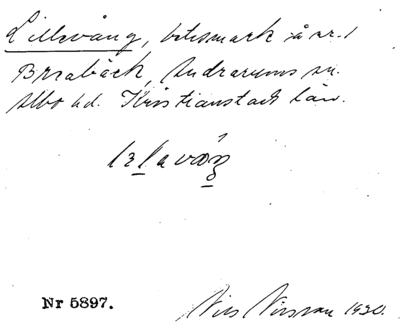 Lillevång, betesmark å nr. 1
Brobäck, Andrarums sn.
Albo hd. Kristianstads län.
Nr 5897.
Nils Nilsson 1930.